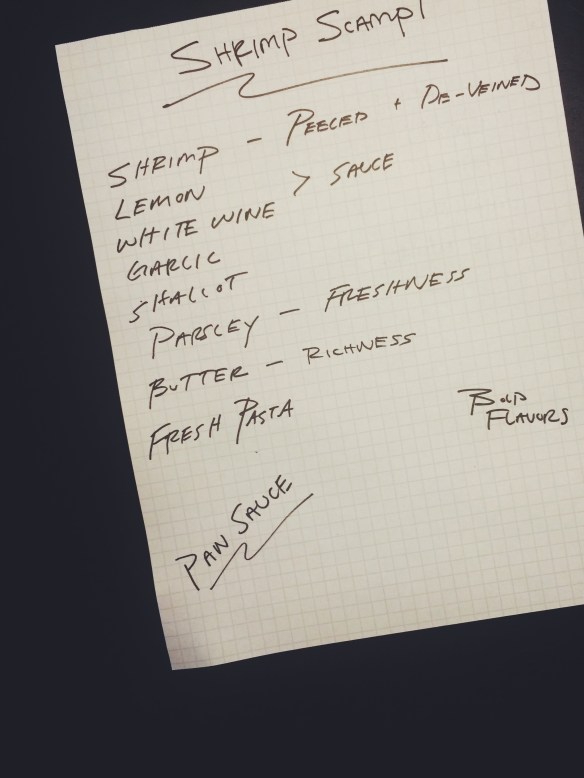 SHRIMP SCAMPI
SHRIMP - PEELED + DE-VEINED
LEMON
WHITE WINE > SAUCE
GARLIC
SHALLOT
PARSLEY - FRESHNESS
BUTTER - RICHNESS
FRESH PASTA
BOLD
FLAVORS
PAN SAUCE